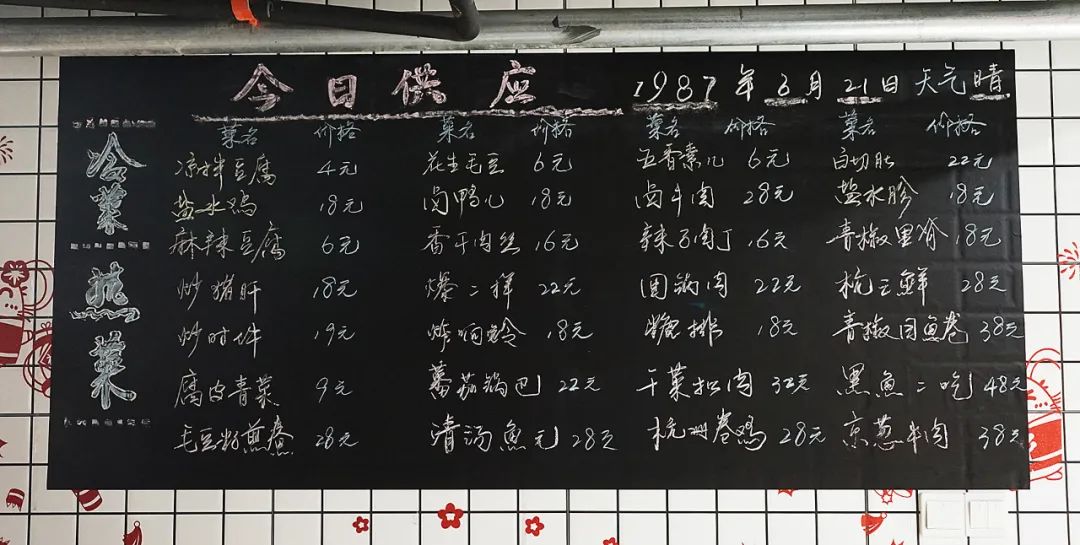 今日供应 1987年6月21日 天气晴
冷菜
热菜
菜名 价格 菜名 价格 菜名 价格 菜名 价格
凉拌豆腐 4元 花生毛豆 6元 五香素儿 6元 白切肚 22元
盐水鸡 18元 卤鸭儿 18元 卤牛肉 28元 盐水胗 18元
麻辣豆腐 6元 香干肉丝 16元 辣子肉丁 16元 青椒里脊 18元
炒猪肝 18元 爆二样 22元 回锅肉 22元 杭三鲜 28元
炒时件 19元 炸响铃 18元 糖排 18元 青椒目鱼卷 38元
腐皮青菜 9元 蕃茄锅巴 22元 干菜扣肉 32元 黑鱼二吃 48元
毛豆籽煎卷 28元 清汤鱼元 28元 杭州卷鸡 28元 京葱牛肉 38元